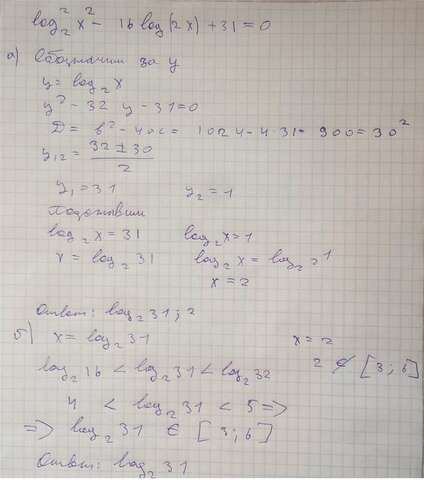 log₂² x² - 16 log(2x) + 31 = 0
а) Обозначим за y
y = log₂ x
y² - 32 y - 31 = 0
D = b² - 4ac = 1024 - 4·31 = 900 = 30²
y₁₂ = (32 ± 30)/2
y₁ = 31 y₂ = 1
Подставим
log₂ x = 31 log₂ x = 1
x = log₂ 31 log₂ x = log₂ 2¹
x = 2
Ответ: log₂ 31; 2
б) x = log₂ 31 x = 2
log₂ 16 < log₂ 31 < log₂ 32 2 ∉ [3; 6]
4 < log₂ 31 < 5 =>
=> log₂ 31 ∈ [3; 6]
Ответ: log₂ 31